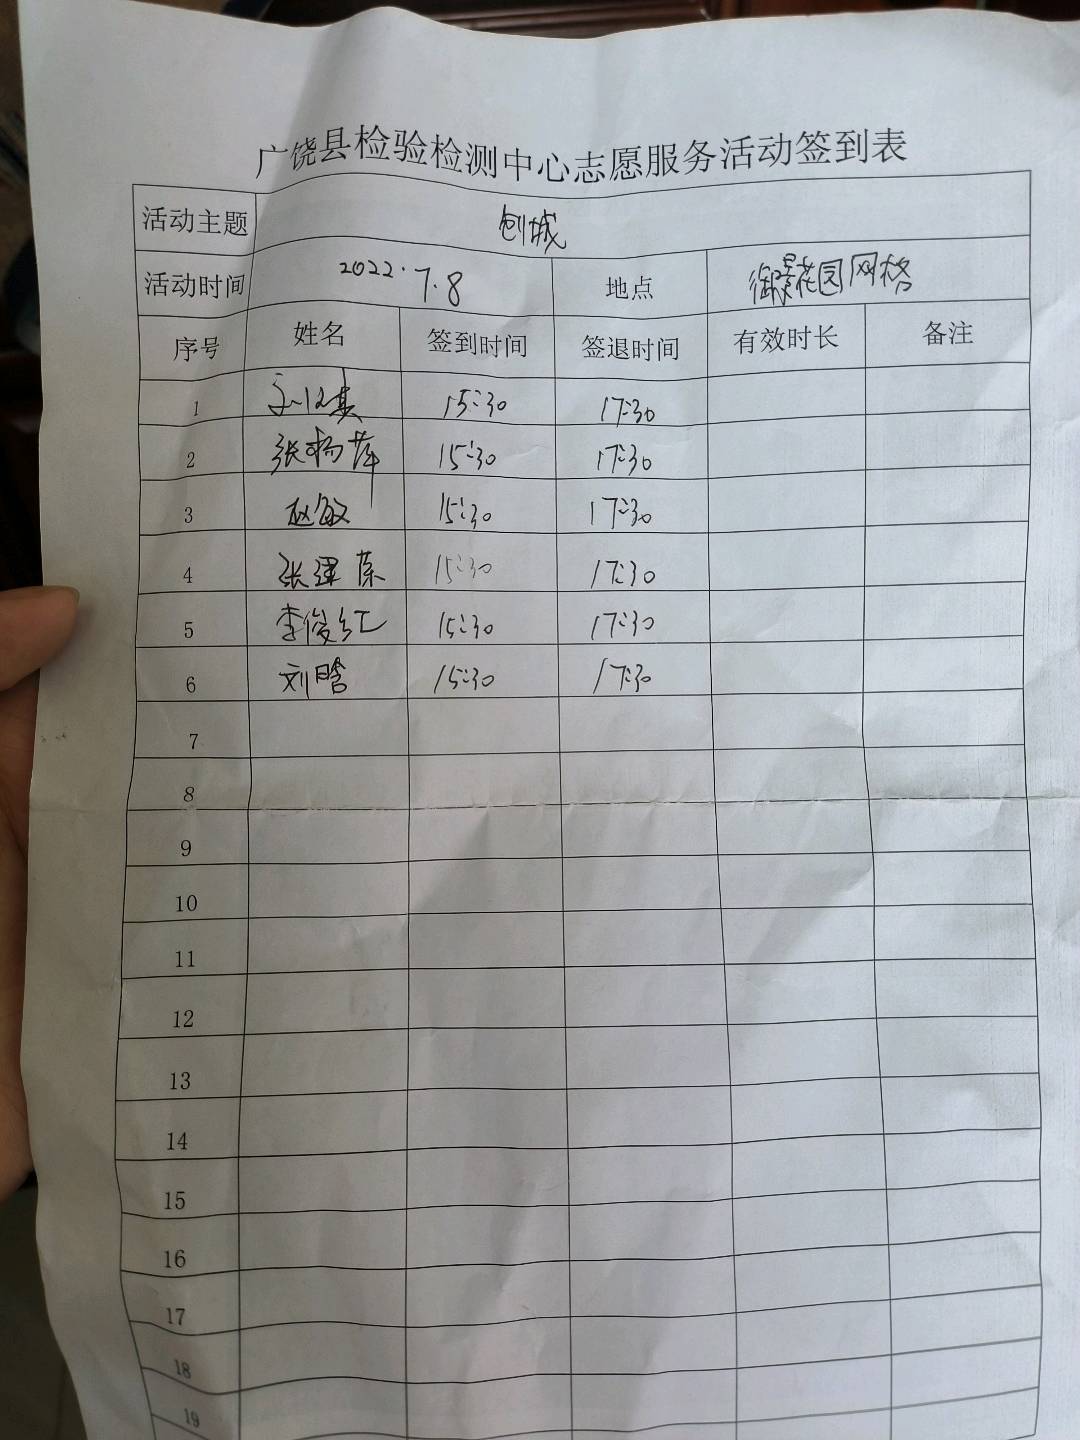 广饶县检验检测中心志愿服务活动签到表
活动主题 创城
活动时间 2022.7.8 地点 御景花园网格
序号 姓名 签到时间 签退时间 有效时长 备注
1 15:30 17:30
2 张杨萍 15:30 17:30
3 赵敏 15:30 17:30
4 张建荣 15:30 17:30
5 李俊红 15:30 17:30
6 刘晗 15:30 17:30
7
8
9
10
11
12
13
14
15
16
17
18
19